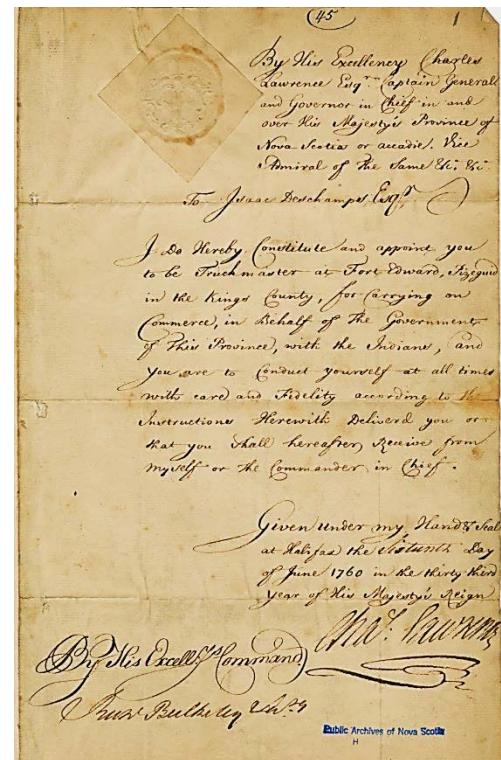 (45
1
By His Excellency Charles
Lawrence Esqr. Captain General
and Governor in Chief in and
over His Majesty's Province of
Nova Scotia or accadie, Vice
Admiral of the Same &c; &c.
To Isaac Deschamps, Esqr.
I Do Hereby Constitute and appoint you
to be Truckmaster at Fort Edward, Pizeguid
in the Kings County, for Carrying on
Commerce, in Behalf of The Government
of This Province, with the Indians, and
you are to Conduct yourself at all times
with care and Fidelity according to the
Instructions Herewith Deliverd you or
that you Shall hereafter, Receive from
myself or the Commander in Chief.
Given under my Hand & Seal
at Halifax the Sixtunth Day
of June 1760 in the thirty third
year of His Majesty's Reign
Chas. Lawrence
By His Excellys Command
Richd Bulkeley
Public Archives of Nova Scotia
H